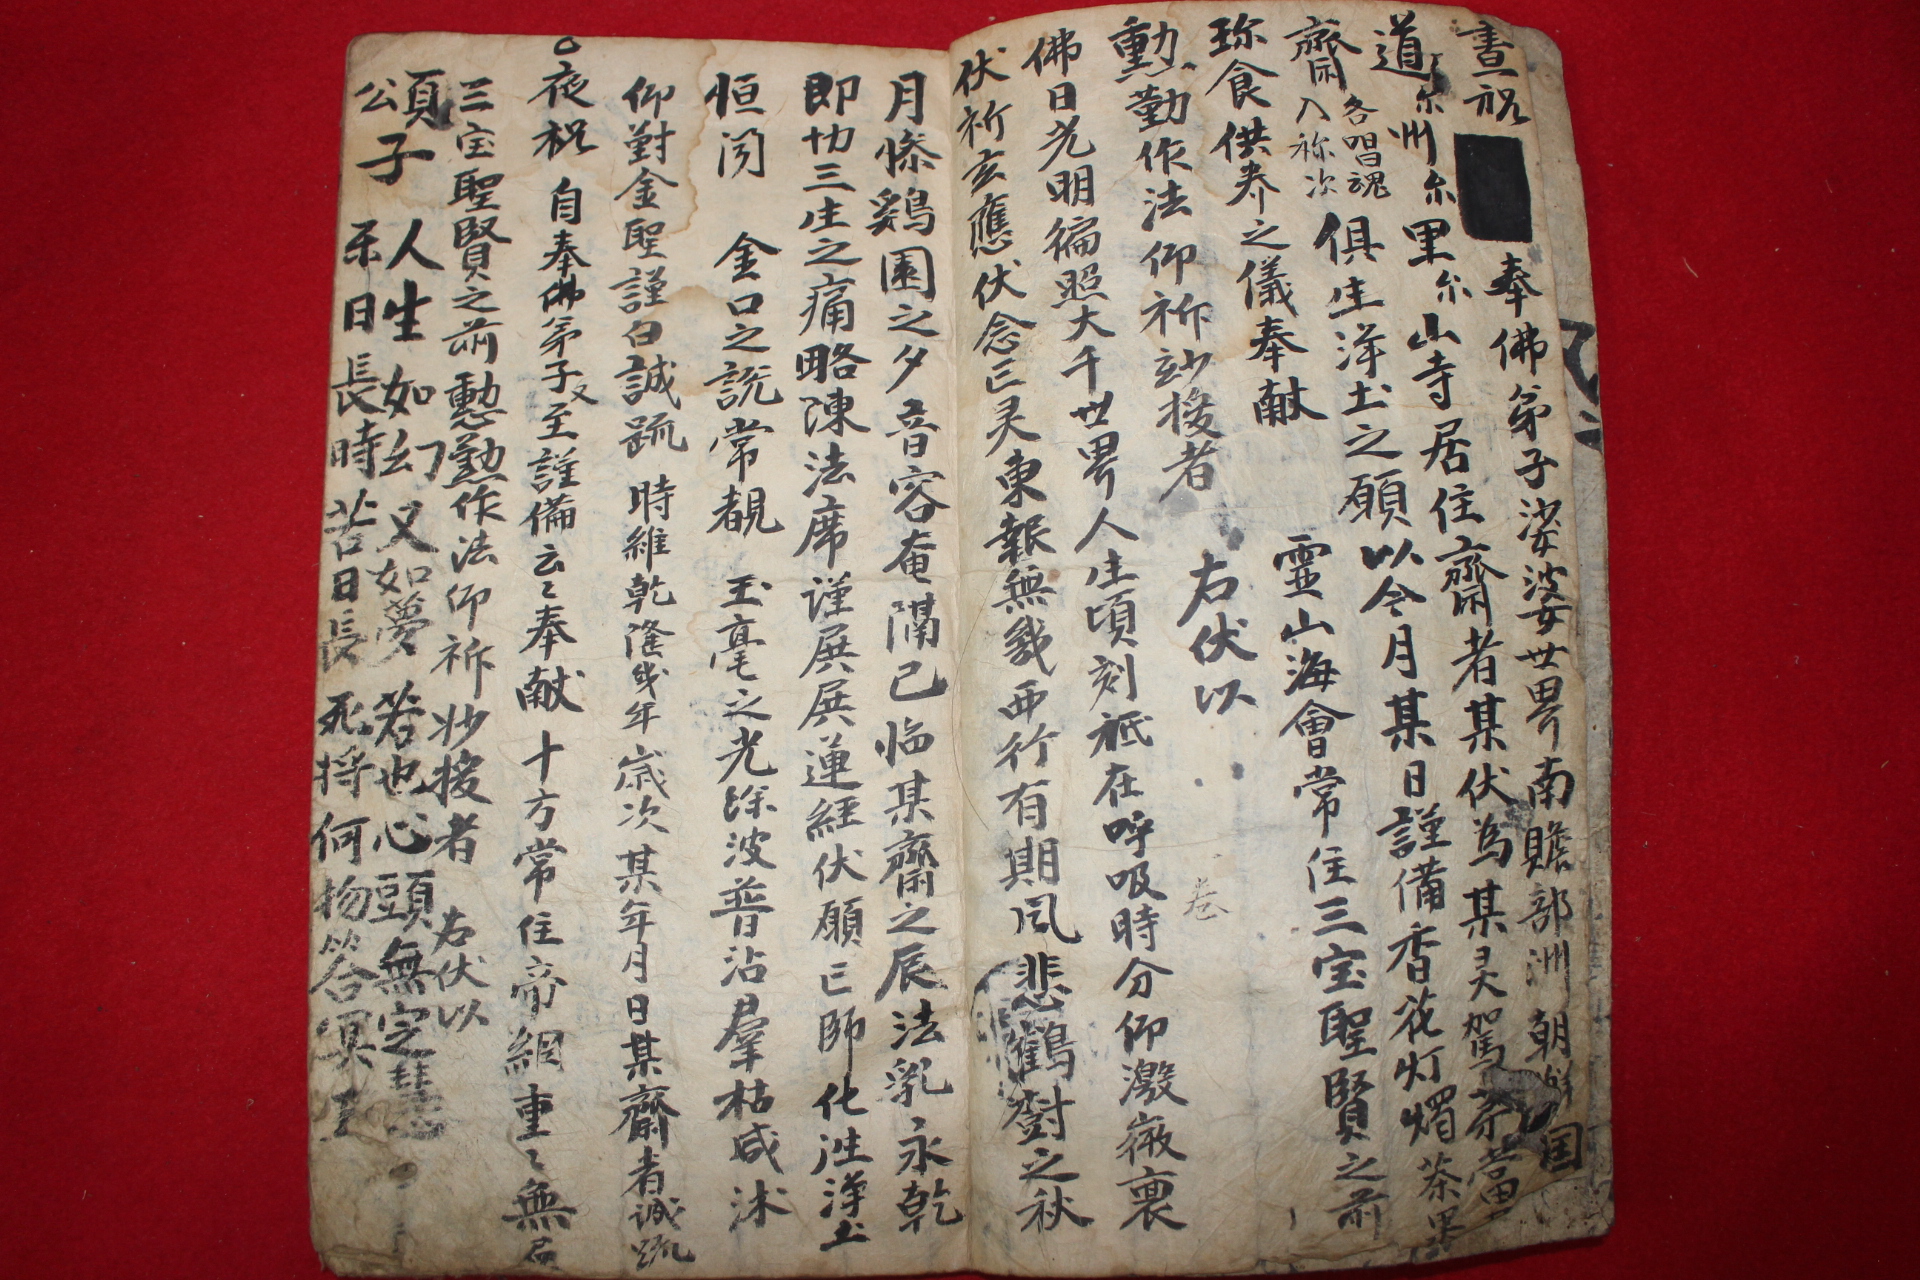 晝祝 奉佛弟子娑婆世界南贍部洲朝鮮国
道 尔 州 尔 里 尔 山寺居住齋者某伏為某灵駕茶當
齋 各唱魂 入称次 俱生淨土之願以今月某日謹備香花灯燭茶果
珎食供养之儀奉献 靈山海會常住三宝聖賢之前
懃勤作法仰祈妙援者 右伏以
佛日光明徧照大千世界人生頃刻祇在呼吸時分仰激微衷
伏祈玄應伏念亡灵東報無幾西行有期风悲鶴樹之秋
月慘鷄園之夕音容奄隔已临某齋之辰法乳永乾
即切三生之痛略陳法席谨展展蓮経伏願亡師化徃淨土
恒闻 金口之説常覩 玉毫之光除波普沾羣枯咸沐
仰對金聖謹白誠䟽 時維乾隆幾年歲次某年月日某齋者誠䟽
○夜祝 自奉佛弟子又至謹備云〻奉献 十方常住帝網重〻無尽
三宝聖賢之前懃懃作法仰祈妙援者 右伏以
頌子 人生如幻又如夢若也心頭無定慧
公 示日長時苦日長死将何物答冥王
卷